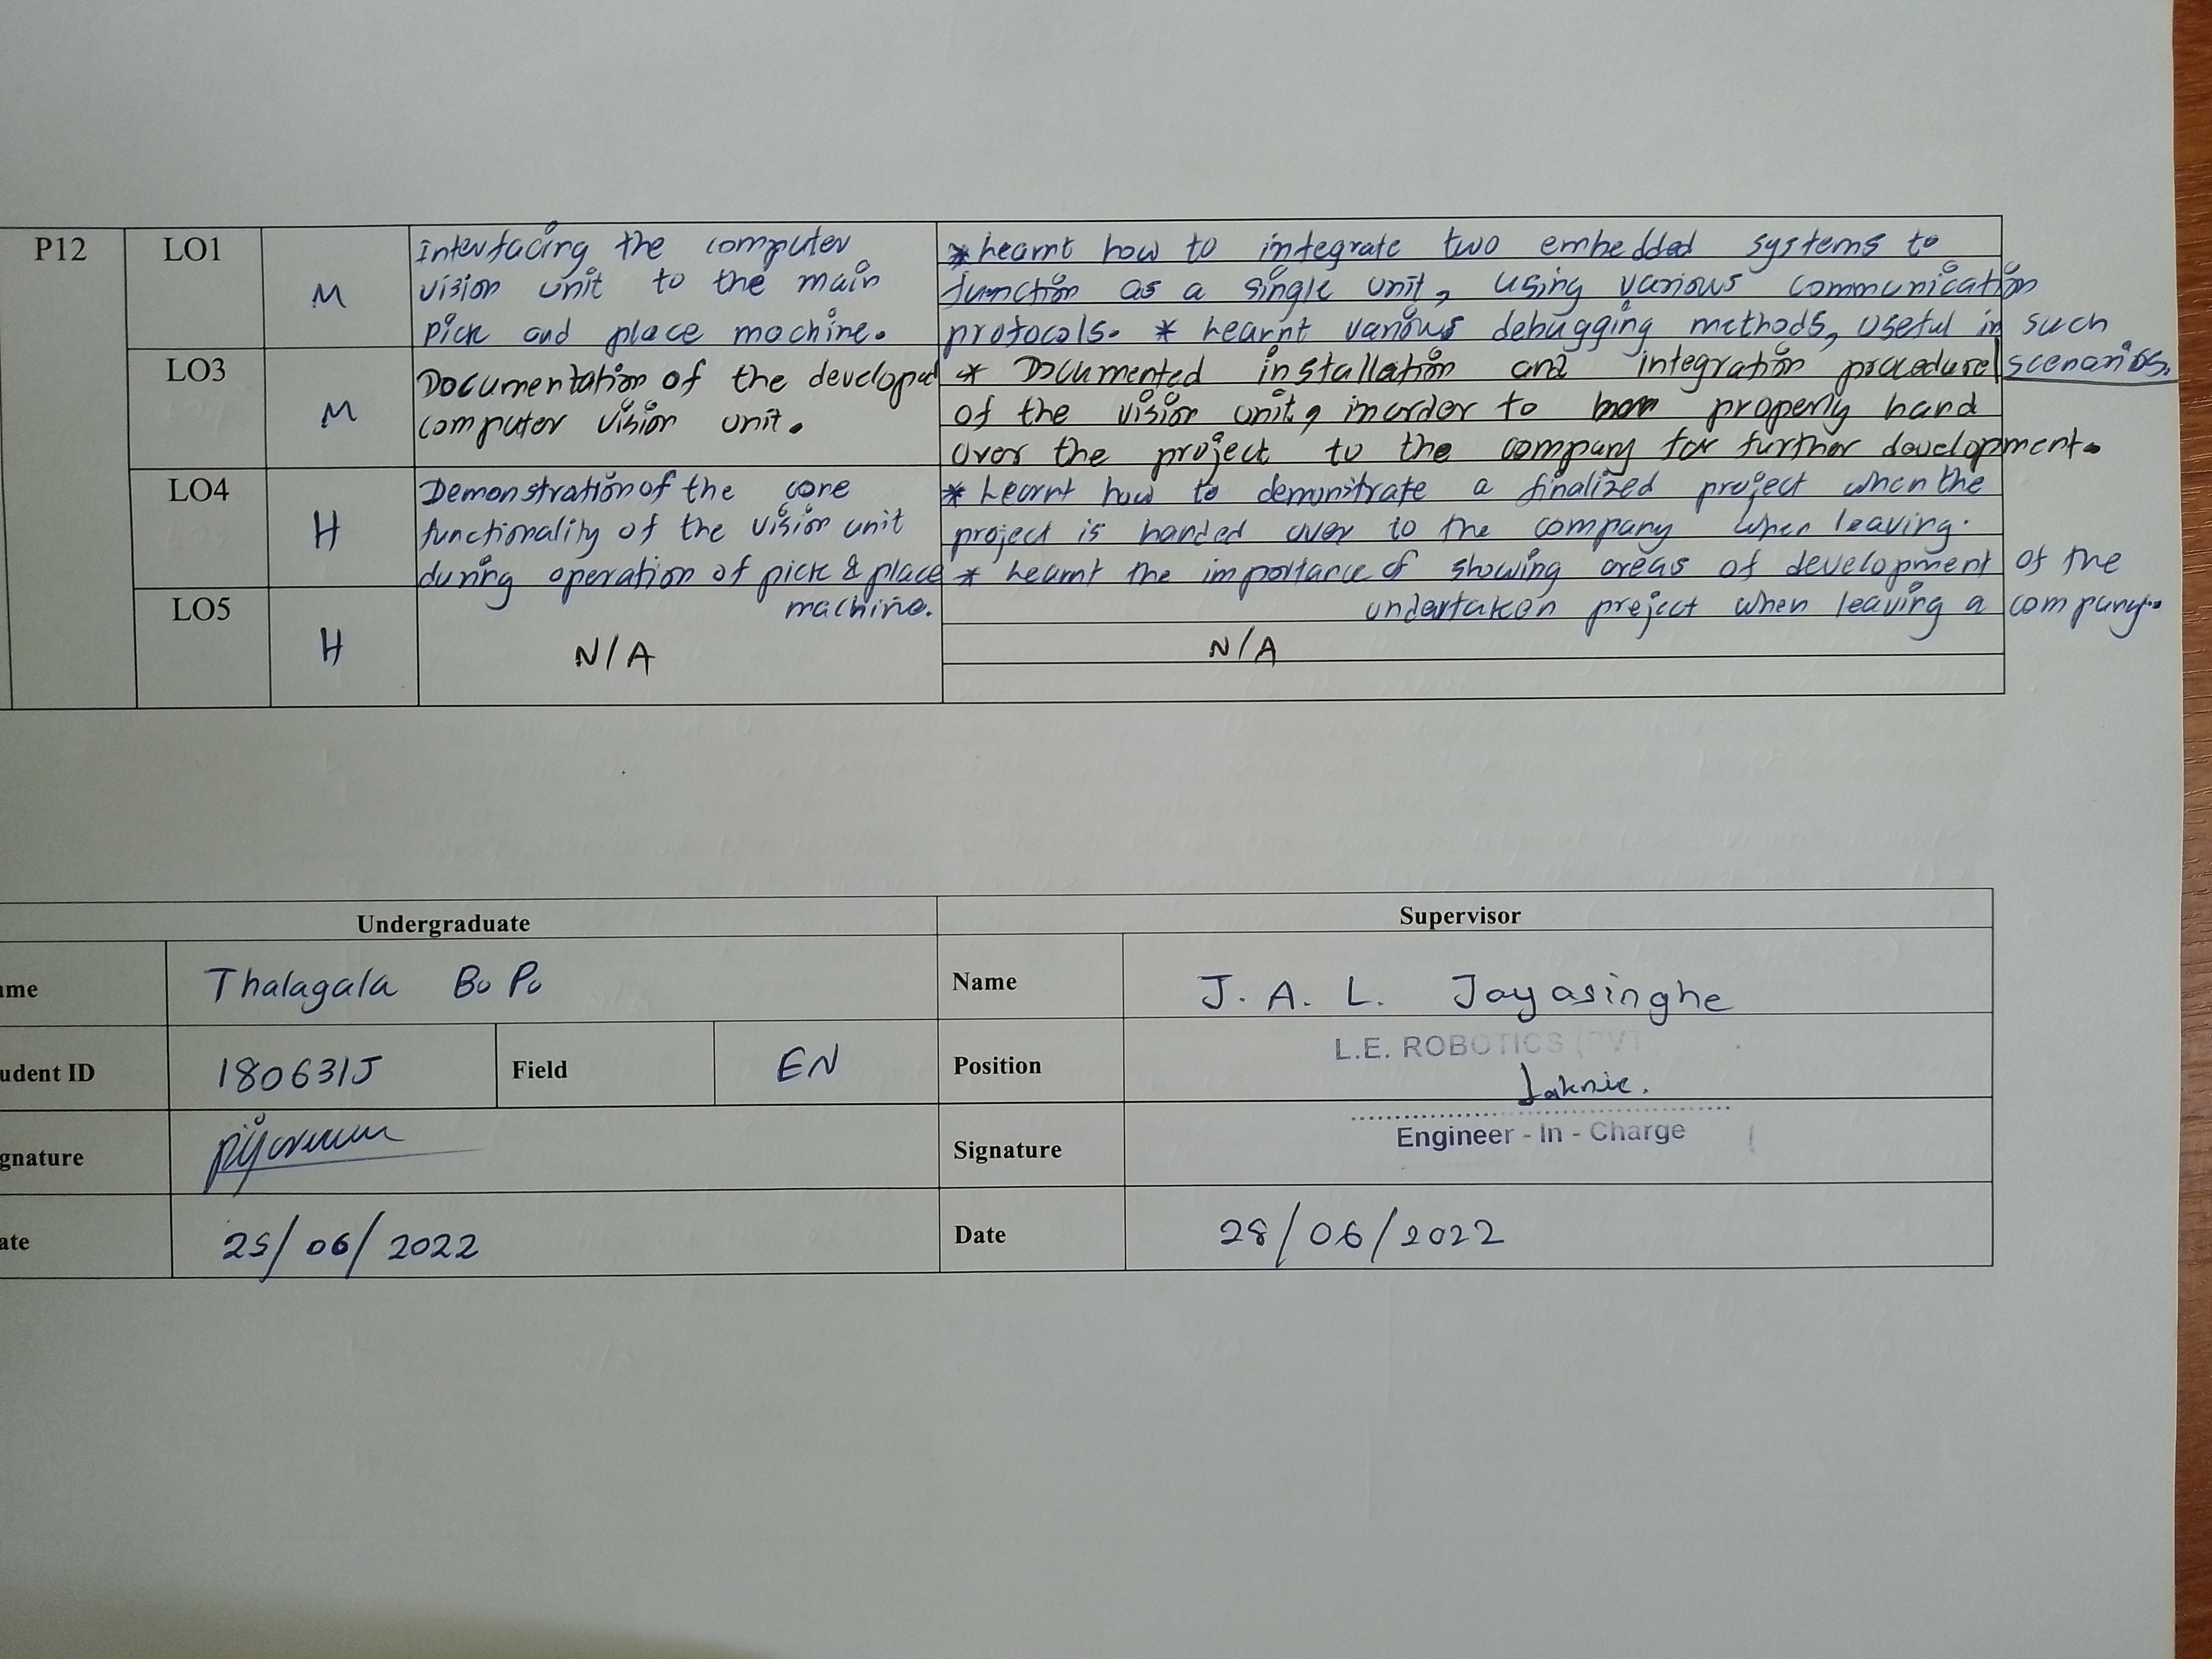 P12 LO1 M Interfacing the computer vision unit to the main pick and place machine.
* Learnt how to integrate two embedded systems to
function as a single unit, using various communication
protocols. * Learnt various debugging methods, useful in such
scenarios.
LO3 M Documentation of the developed computer vision unit.
* Documented installation and integration procedure
of the vision unit, inorder to properly hand
over the project to the company for further development.
LO4 H Demonstration of the core functionality of the vision unit during operation of pick & place machine.
* Learnt how to demonstrate a finalized project when the
project is handed over to the company when leaving.
* Learnt the importance of showing areas of development of the
undertaken project when leaving a company.
LO5 H N/A N/A
Undergraduate Supervisor
ame Thalagala B. P. Name J. A. L. Jayasinghe
udent ID 180631J Field EN Position L.E. ROBOTICS (PVT
gnature Signature
Engineer - In - Charge
ate 25/06/2022 Date 28/06/2022